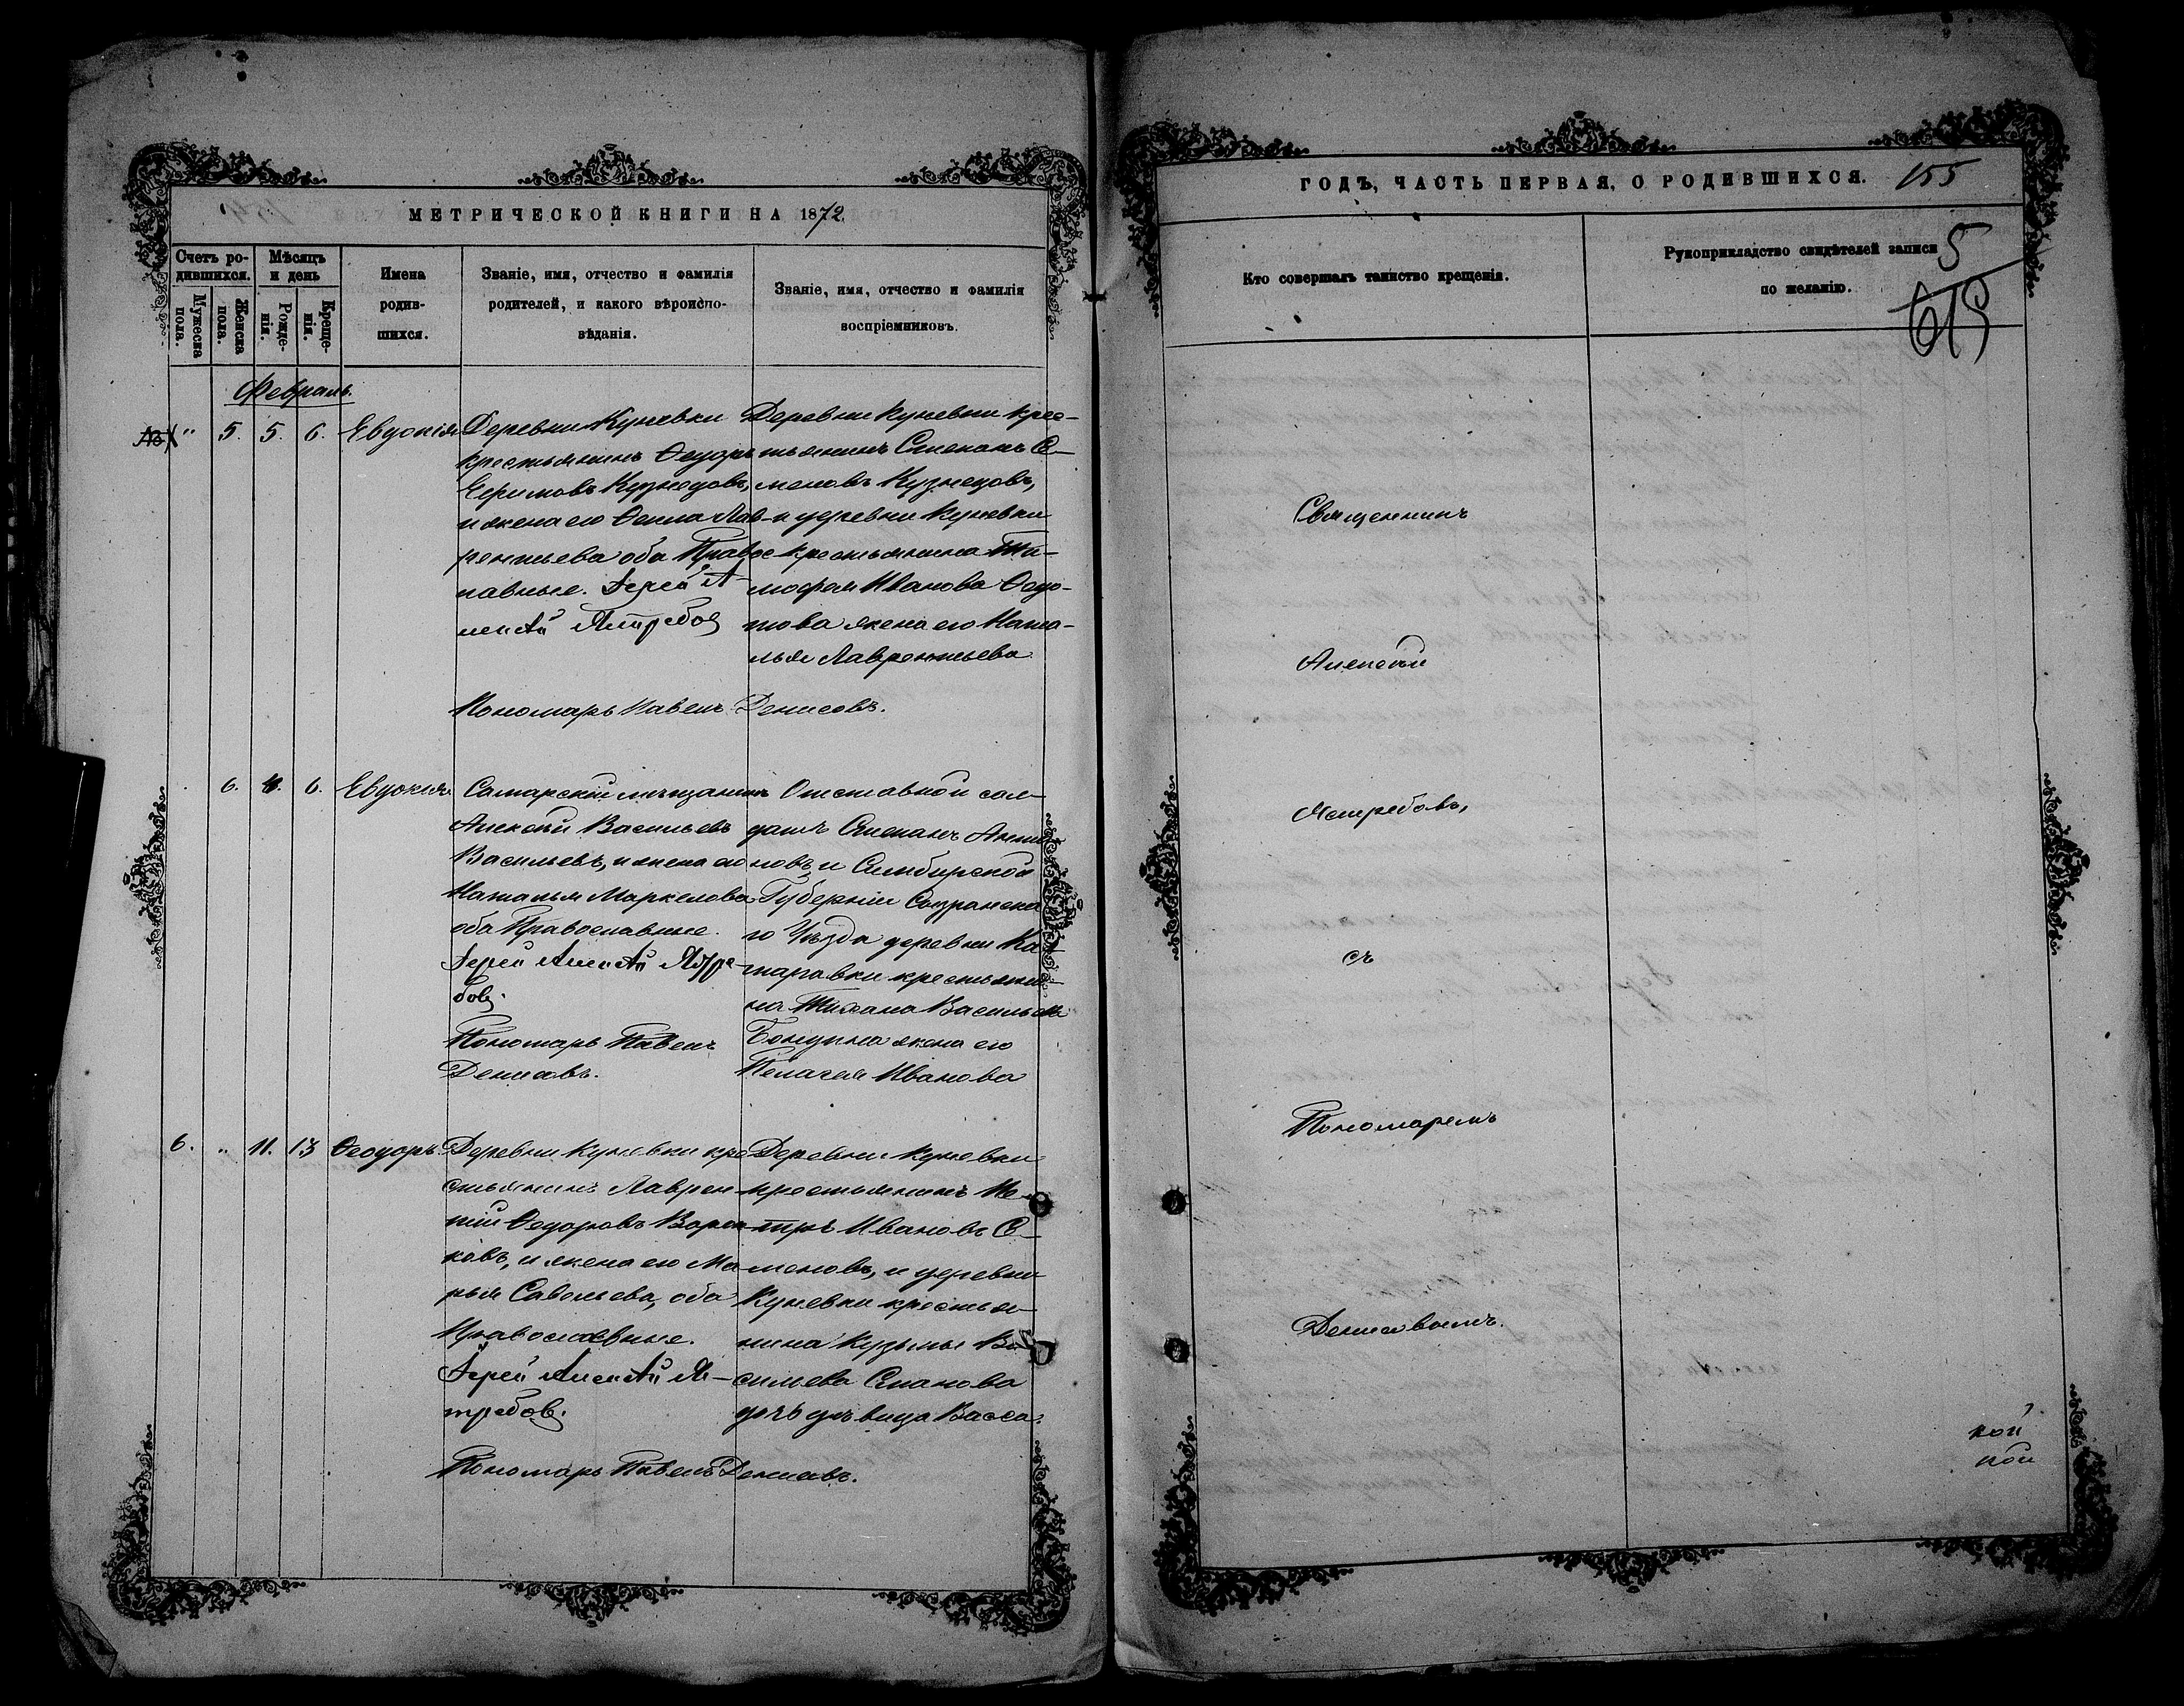 МЕТРИЧЕСКОЙ КНИГИ НА 1872.
Счетъ ро-
дившихся.
Мужеска
пола.
Женска
пола.
Мѣсяцъ
и день
Рожде-
нія.
Креще-
нія.
Имена
родив-
шихся.
Званіе, имя, отчество и фамилія
родителей, и какого вѣроиспо-
вѣданія.
Званіе, имя, отчество и фамилія
воспріемниковъ.
Февраль.
" 5. 5. 6. Евдокія
Деревни Куневки
крестьянинъ Ѳедоръ
Ефимовъ Кузнецовъ,
и жена его Ѳекла Лав-
рентьева оба Правос-
лавные. Іерей А-
лексѣй Ястребовъ
Деревни Куневки крес-
тьянинъ Степанъ Се-
меновъ Кузнецовъ,
и деревни Куневки
крестьянина Ти-
мофея Иванова Ѳедо-
това жена его Ната-
лья Лаврентьева
Пономарь Павелъ Денисовъ.
6. 4. 6. Евдокія
Самарскій мѣщанинъ
Алексѣй Васильевъ
Васильевъ, и жена его
Наталья Маркелова
оба Православные.
Іерей Алексѣй Ястре-
бовъ.
Пономарь Павелъ
Денисовъ.
Отставной сол-
датъ Степанъ
новъ, и Симбирской
Губерніи Сызранска-
го Уѣзда деревни Ка-
таровки крестьяни-
на Тихана Васильева
жена его
Пелагея Иванова
6. " 11. 13 Ѳеодоръ.
Деревни Куневки кре-
стьянинъ Лаврен-
тій Ѳедоровъ
ковъ, и жена его Ма-
рья Савельева, оба
Православные.
Іерей Алексѣй Яс-
требовъ.
Деревни Куневки
крестьянинъ Пе-
тръ Ивановъ Се-
меновъ, и деревни
Куневки крестья-
нина Кузьмы Ва-
сильева
дочь дѣвица Васса.
Пономарь Павелъ Денисовъ.
ГОДЪ, ЧАСТЬ ПЕРВАЯ, О РОДИВШИХСЯ. 155
Кто совершалъ таинство крещенія.
Рукоприкладство свидѣтелей записи
по желанію.
5
619
Священникъ
Алексѣй
Ястребовъ,
съ
Пономаремъ
Денисовымъ.
кой
кой